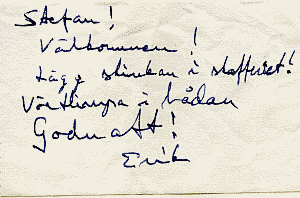 Stefan!
Välkommen!
Lägg skinkan i skafferiet!
i lådan
Godnatt!
Erik